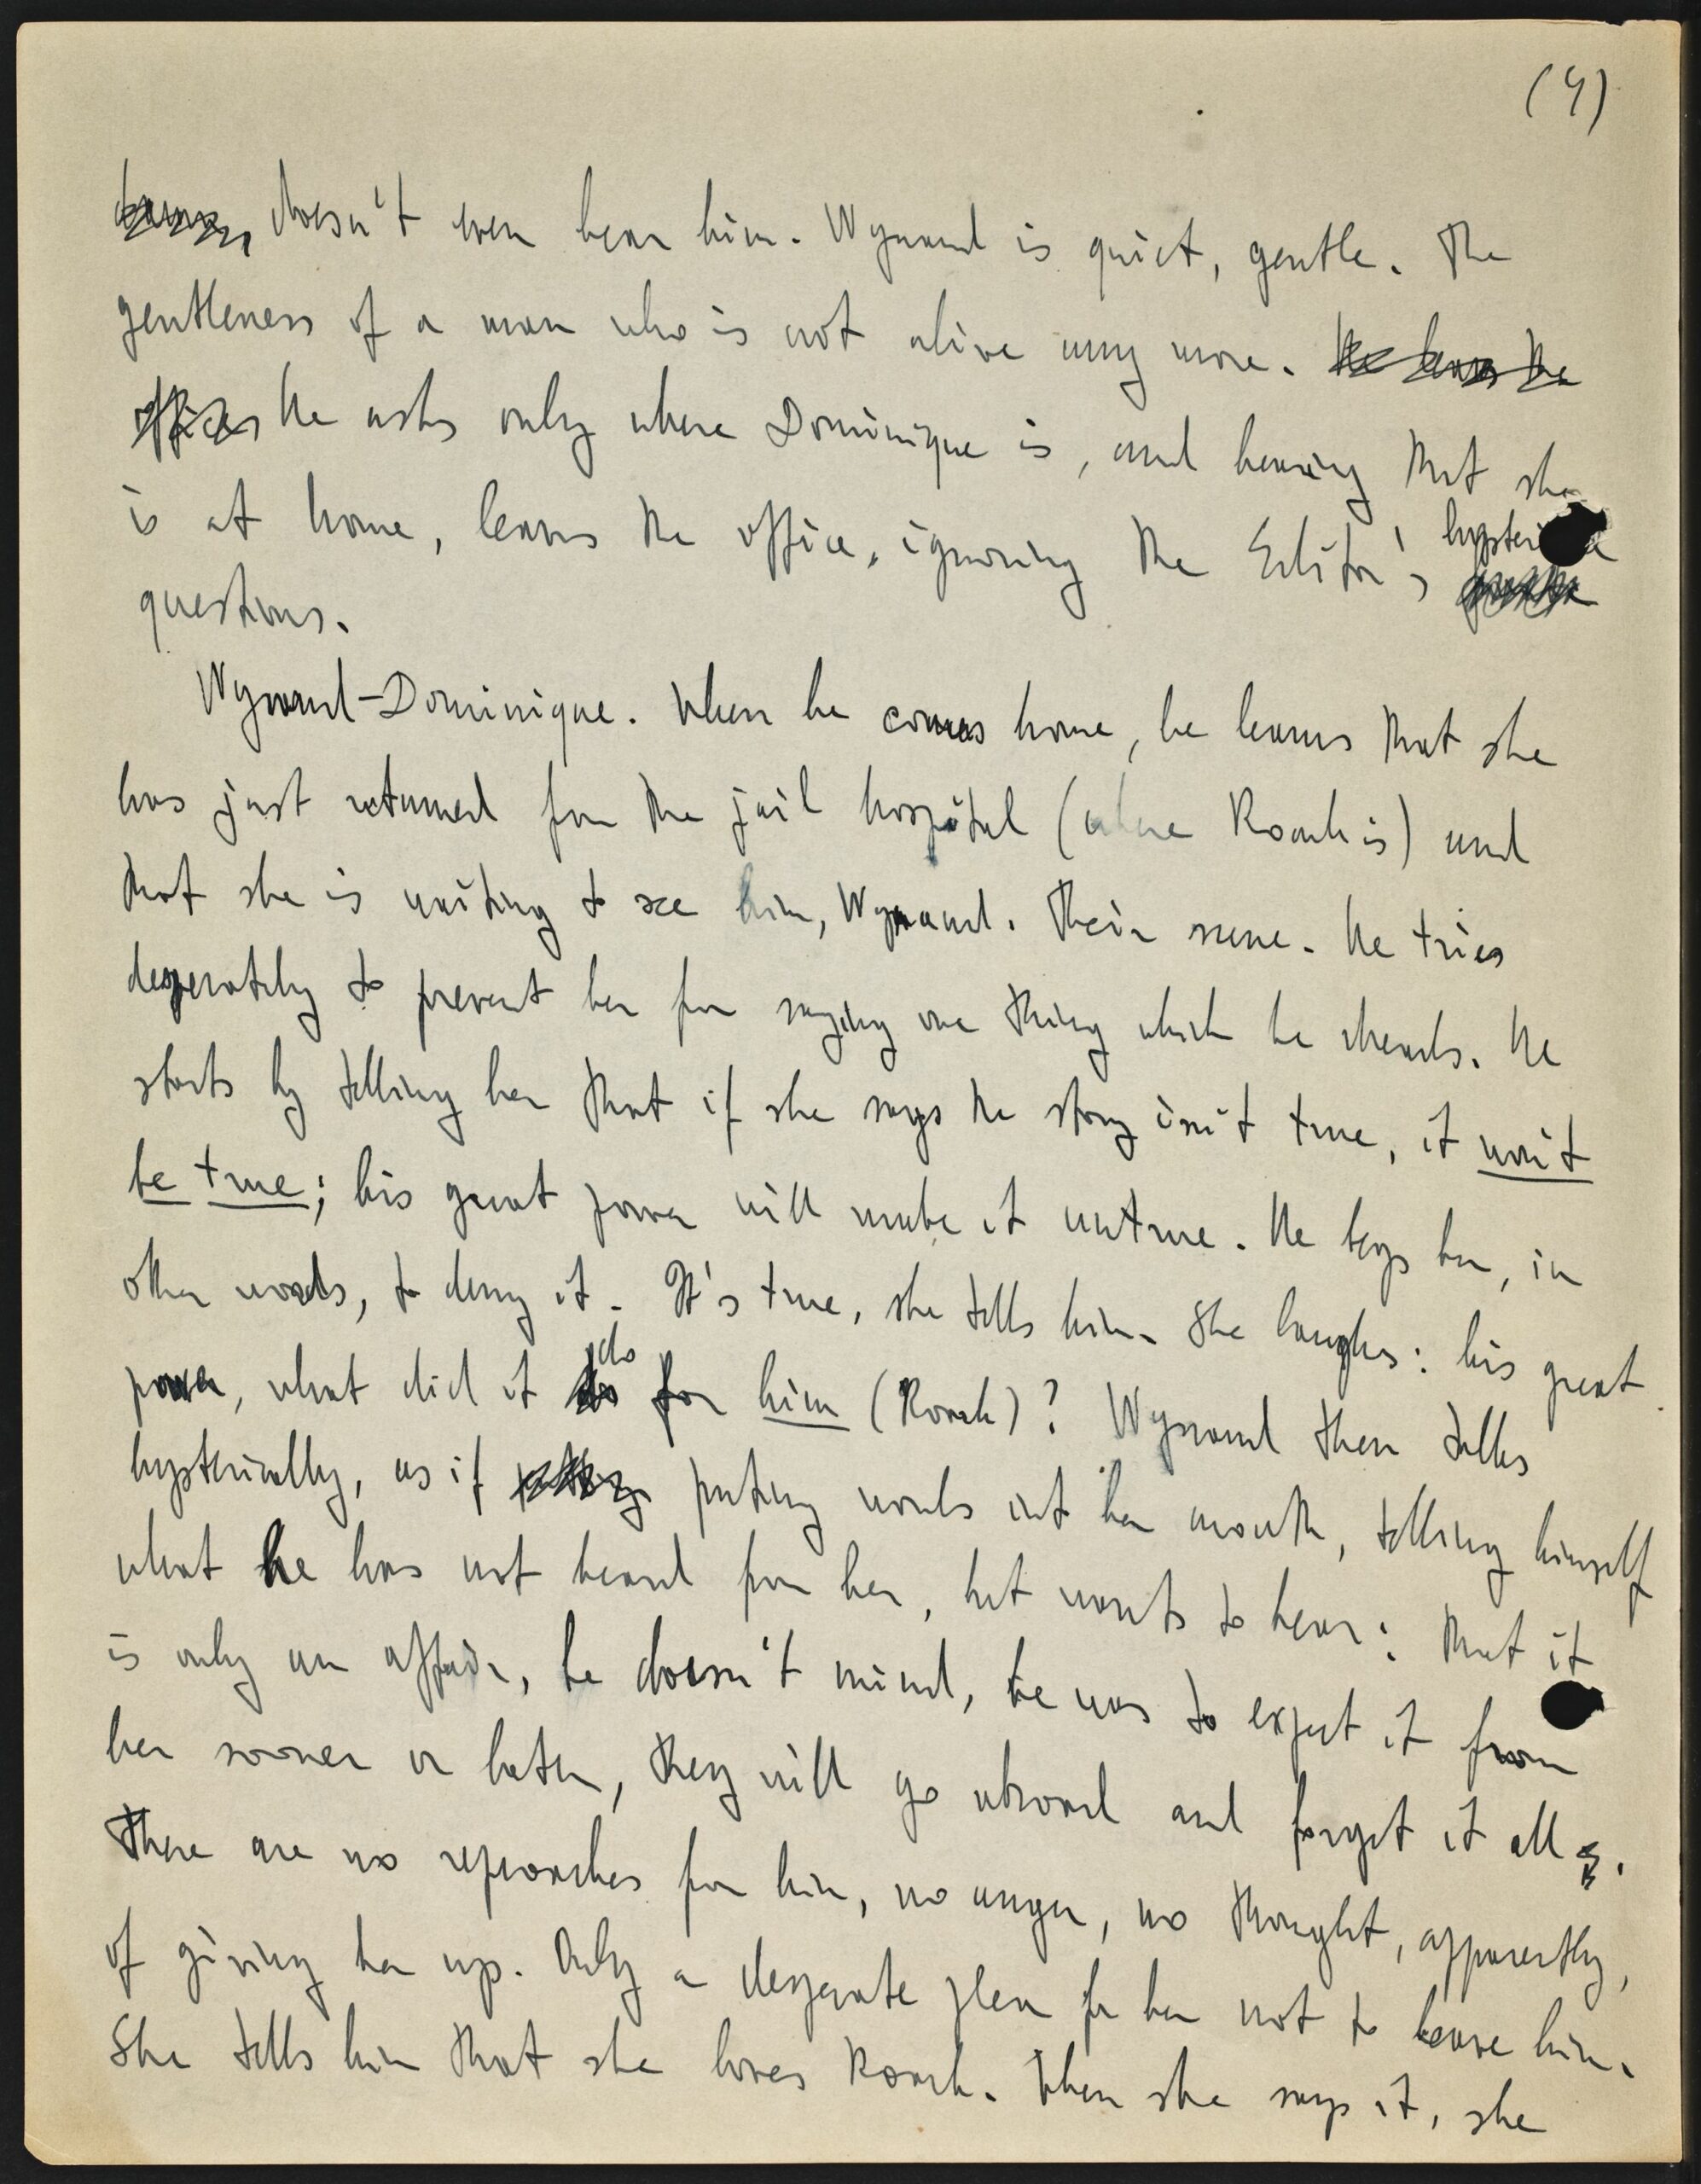 (4)
doesn't even hear him. Wynand is quiet, gentle. The
gentleness of a man who is not alive any more. He leaves the
office He asks only where Dominique is, and hearing that she
is at home, leaves the office, ignoring the Editor's
questions.
Wynand-Dominique. When he comes home, he learns that she
has just returned from the jail hospital (where Roark is) and
that she is waiting to see him, Wynand. Their scene. He tries
desperately to prevent her from saying one thing which he dreads. He
starts by telling her that if she says the story isn't true, it won't
be true; his great power will make it untrue. He begs her, in
other words, to deny it. It's true, she tells him. She laughs: his great
power, what did it do for him (Roark)? Wynand then talks
hysterically, as if putting words into her mouth, telling himself
what he has not heard from her, but wants to hear: that it
is only an affair, he doesn't mind, he was to expect it from
her sooner or later, they will go abroad and forget it all.
There are no reproaches from him, no anger, no thought, apparently,
of giving her up. Only a desperate plea for her not to leave him.
She tells him that she loves Roark. When she says it, she